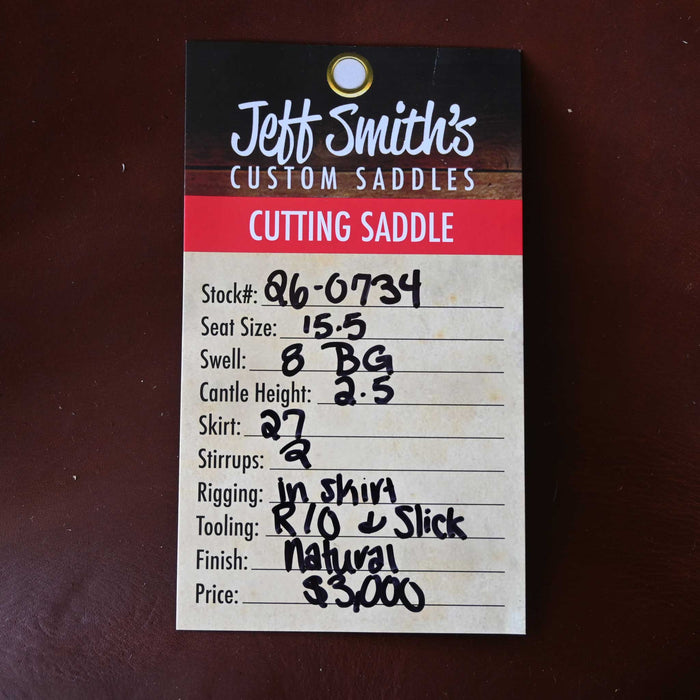 Jeff Smith's
CUSTOM SADDLES
CUTTING SADDLE
Stock#: 26-0734
Seat Size: 15.5
Swell: 8 BG
Cantle Height: 2.5
Skirt: 27
Stirrups: 2
Rigging: in skirt
Tooling: R/O & Slick
Finish: Natural
Price: $3,000